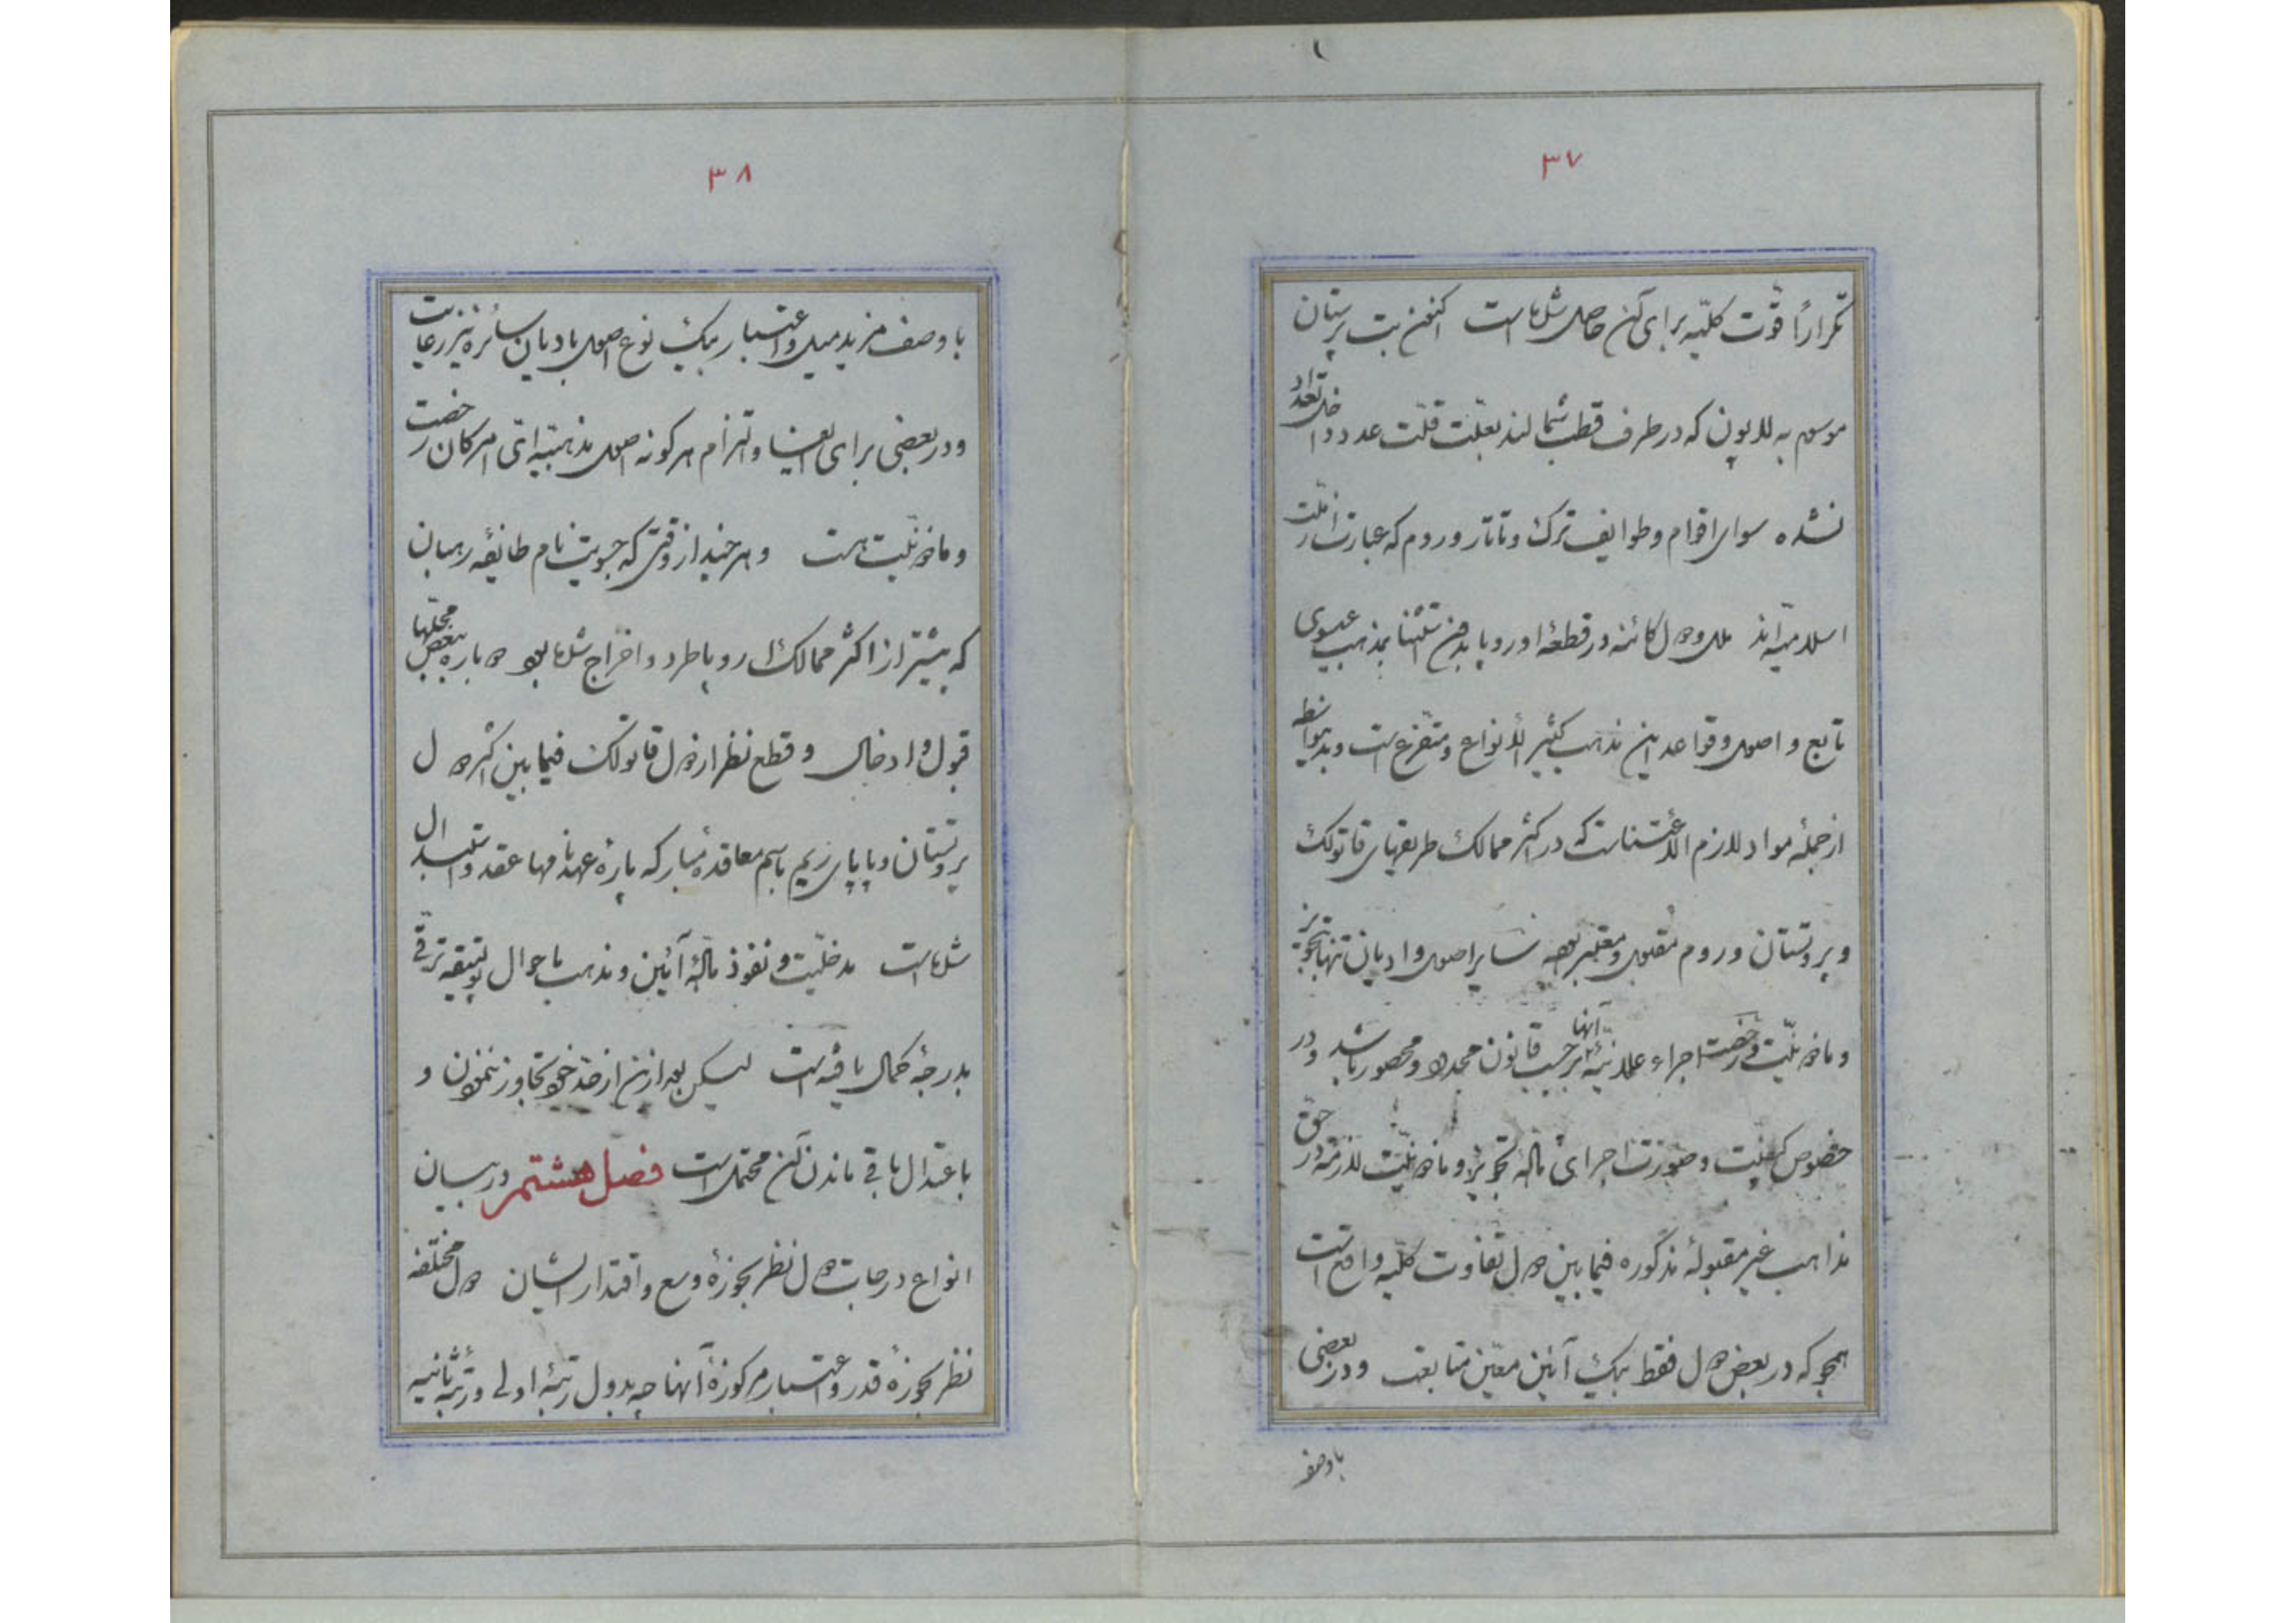 ۳۷
تکراراً قوّت کلّیه برای آن حاصل شده است اکنون بت پرستان
موسوم به لاپون که در طرف قطب شمالند بعلّت قلّت عدد داخل تعداد
نشده سوای اقوام و طوایف ترک و تاتار و روم که عبارت از ملّت
اسلامیّه‌اند ملل و دول کائنه در قطعهٔ اوروپا بدون استثنا بمذهب عیسوی
تابع و اصول و قواعد این مذهب کثیر الأنواع و متفرع است و بدینواسطه
از جملهٔ مواد لازم الاعتناست که در اکثر ممالک طریقهای قاتولک
و پروتستان و روم مقبول و معتبر بوده سایر اصول و ادیان تنها بتجویز
و ماذونیّت و رخصت اجراء علانیّهٔ آنها بر حسب قانون محدود و محصور باشد و در
خصوص کیفیّت و صورت اجرای مادّهٔ تجویز و ماذونیّت لازمه در حقّ
مذاهب غیر مقبولهٔ مذکوره فیمابین دول تفاوت کلّیه واقع است
همچو که در بعض دول فقط بیک آئین معیّن متابعت و در بعضی
باوصف
۳۸
باوصف مزید میل و اعتبار بیک نوع اصول بادیان سائره نیز رعایت
و در بعضی برای اعتنا و التزام هر گونه اصول مذهبیّه اتی امرکان رخصت
و ماذونیّت هست و هر چند از وقتی که جزویت نام طائفه رهبان
که پیشتر از اکثر ممالک اروپا طرد و اخراج شده بود دوباره ببعض محلّها
قبول و ادخال و قطع نظر از دول قاتولک فیمابین اکثر دول
پروتستان و پاپای ریم باسم معاقدهٔ مبارکه پارهٔ عهدنامها عقد و استبدال
شده است مدخلیّت و نفوذ مادّهٔ آئین و مذهب باحوال پولتیقه ترقّی
بدرجهٔ کمال یافته است لیکن بعد ازین از حدّ خود تجاوز ننمودن و
باعتدال باقی ماندن آن محتمل است فصل هشتم در بیان
انواع درجات دول نظر بحوزهٔ وسع و اقتدار ایشان دول مختلفه
نظر بحوزهٔ قدر و اعتبار مرکوزهٔ آنها چه بدول رتبهٔ اولی و رتبهٔ ثانیه